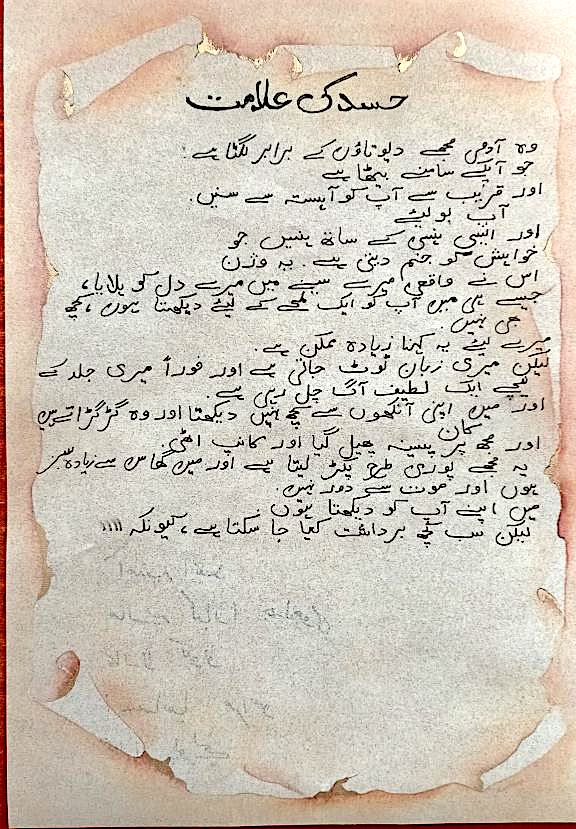 حسد کی علامت
وہ آدمی مجھے دیوتاؤں کے برابر لگتا ہے
جو آپکے سامنے بیٹھا ہے
اور قریب سے آپ کو آہستہ سے سنیں.
آپ بولیئے
اور ایسی ہنسی کے ساتھ ہنسیں جو
خواہش کو جنم دیتی ہے. یہ وژن
اس نے واقعی میرے سینے میں میرے دل کو ہلایا،
جیسے ہی میں آپ کو ایک لمحے کے لیئے دیکھتا ہوں، کچھ
بھی نہیں.
میرے لیئے یہ کہنا زیادہ ممکن ہے.
لیکن میری زبان ٹوٹ جاتی ہے اور فوراً میری جلد کے
نیچے ایک لطیف آگ چل رہی ہے.
اور میں اپنی آنکھوں سے کچھ نہیں دیکھتا اور وہ گڑگڑاتے ہیں
کان
اور مجھ پر پسینہ پھیل گیا اور کانپ اٹھی.
یہ مجھے پوری طرح پکڑ لیتا ہے اور میں گھاس سے زیادہ سبز
ہوں اور موت سے دور نہیں.
میں اپنے آپ کو دیکھتا ہوں
لیکن سب کچھ برداشت کیا جا سکتا ہے، کیونکہ ااا